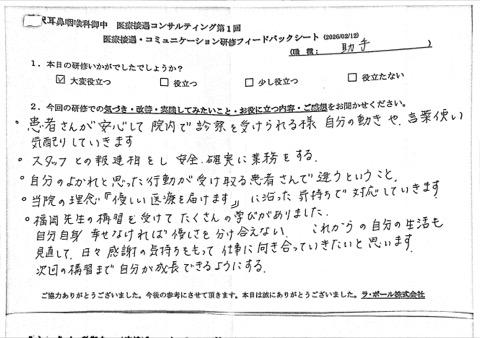 耳鼻咽喉科御中 医療接遇コンサルティング第1回
医療接遇・コミュニケーション研修フィードバックシート (2026/02/12)
(職種: 助手 )
1.本日の研修いかがでしたでしょうか?
☑ 大変役立つ □ 役立つ □ 少し役立つ □ 役立たない
2.今回の研修での気づき・改善・実践してみたいこと・お役に立つ内容・ご感想をお聞かせください。
・患者さんが安心して院内で診察を受けられる様 自分の動きや、言葉使い
気配りしていきます
・スタッフとの報連相をし 安全、確実に業務をする。
・自分のよかれと思った行動が受け取る患者さんで違うということ。
・当院の理念『優しい医療を届けます』に沿った気持ちで対応していきます
・福岡先生の講習を受けてたくさんの学びがありました。
自分自身 幸せなければ優しさを分け合えない。 これからの自分の生活も
見直して、日々感謝の気持ちをもって仕事に向き合っていきたいと思います。
次回の講習まで自分が成長できるようにする。
ご協力ありがとうございました。今後の参考にさせて頂きます。本日は誠にありがとうございました。 ラ・ポール株式会社